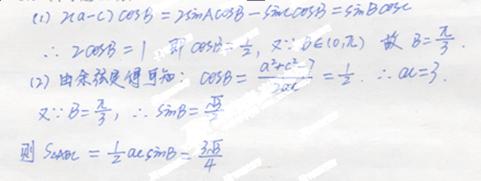 (1) ∵(2a-c)cosB=2sinAcosB-sinCcosB=sinBcosC
∴2cosB=1 即cosB=1/2, 又∵B∈(0,π) 故B=π/3.
(2) 由余弦定理可知: cosB=(a²+c²-7)/(2ac)=1/2. ∴ac=3.
又∵B=π/3, ∴sinB=√3/2
则 S△ABC=1/2acsinB=3√3/4